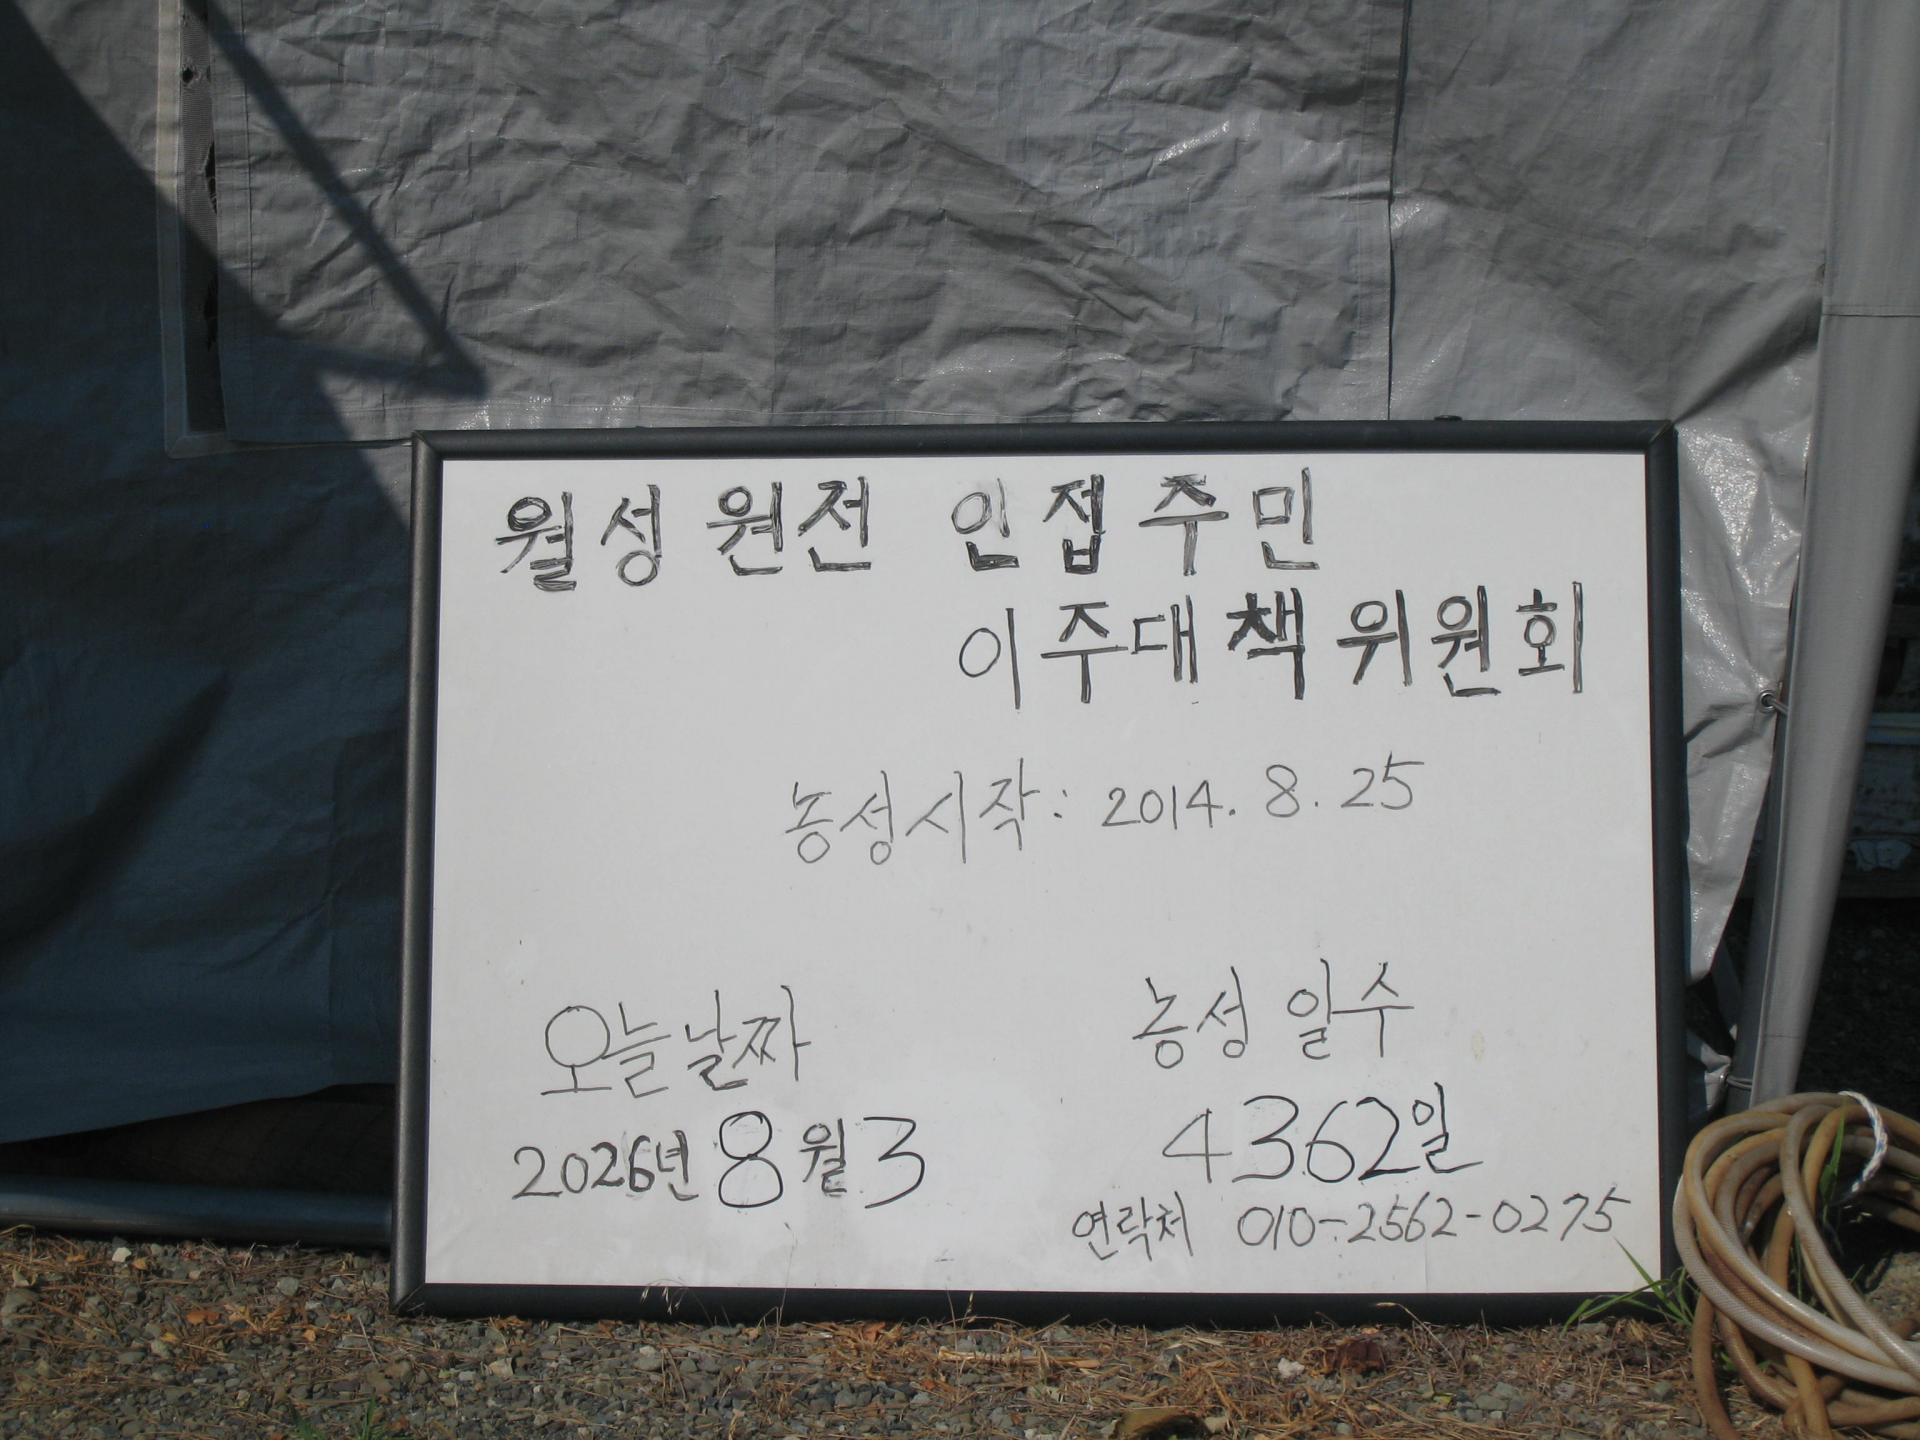 월성 원전 인접주민
이주대책위원회
농성시작: 2014. 8. 25
오늘날짜
2026년 8월 3
농성 일수
4362일
연락처 010-2562-0275